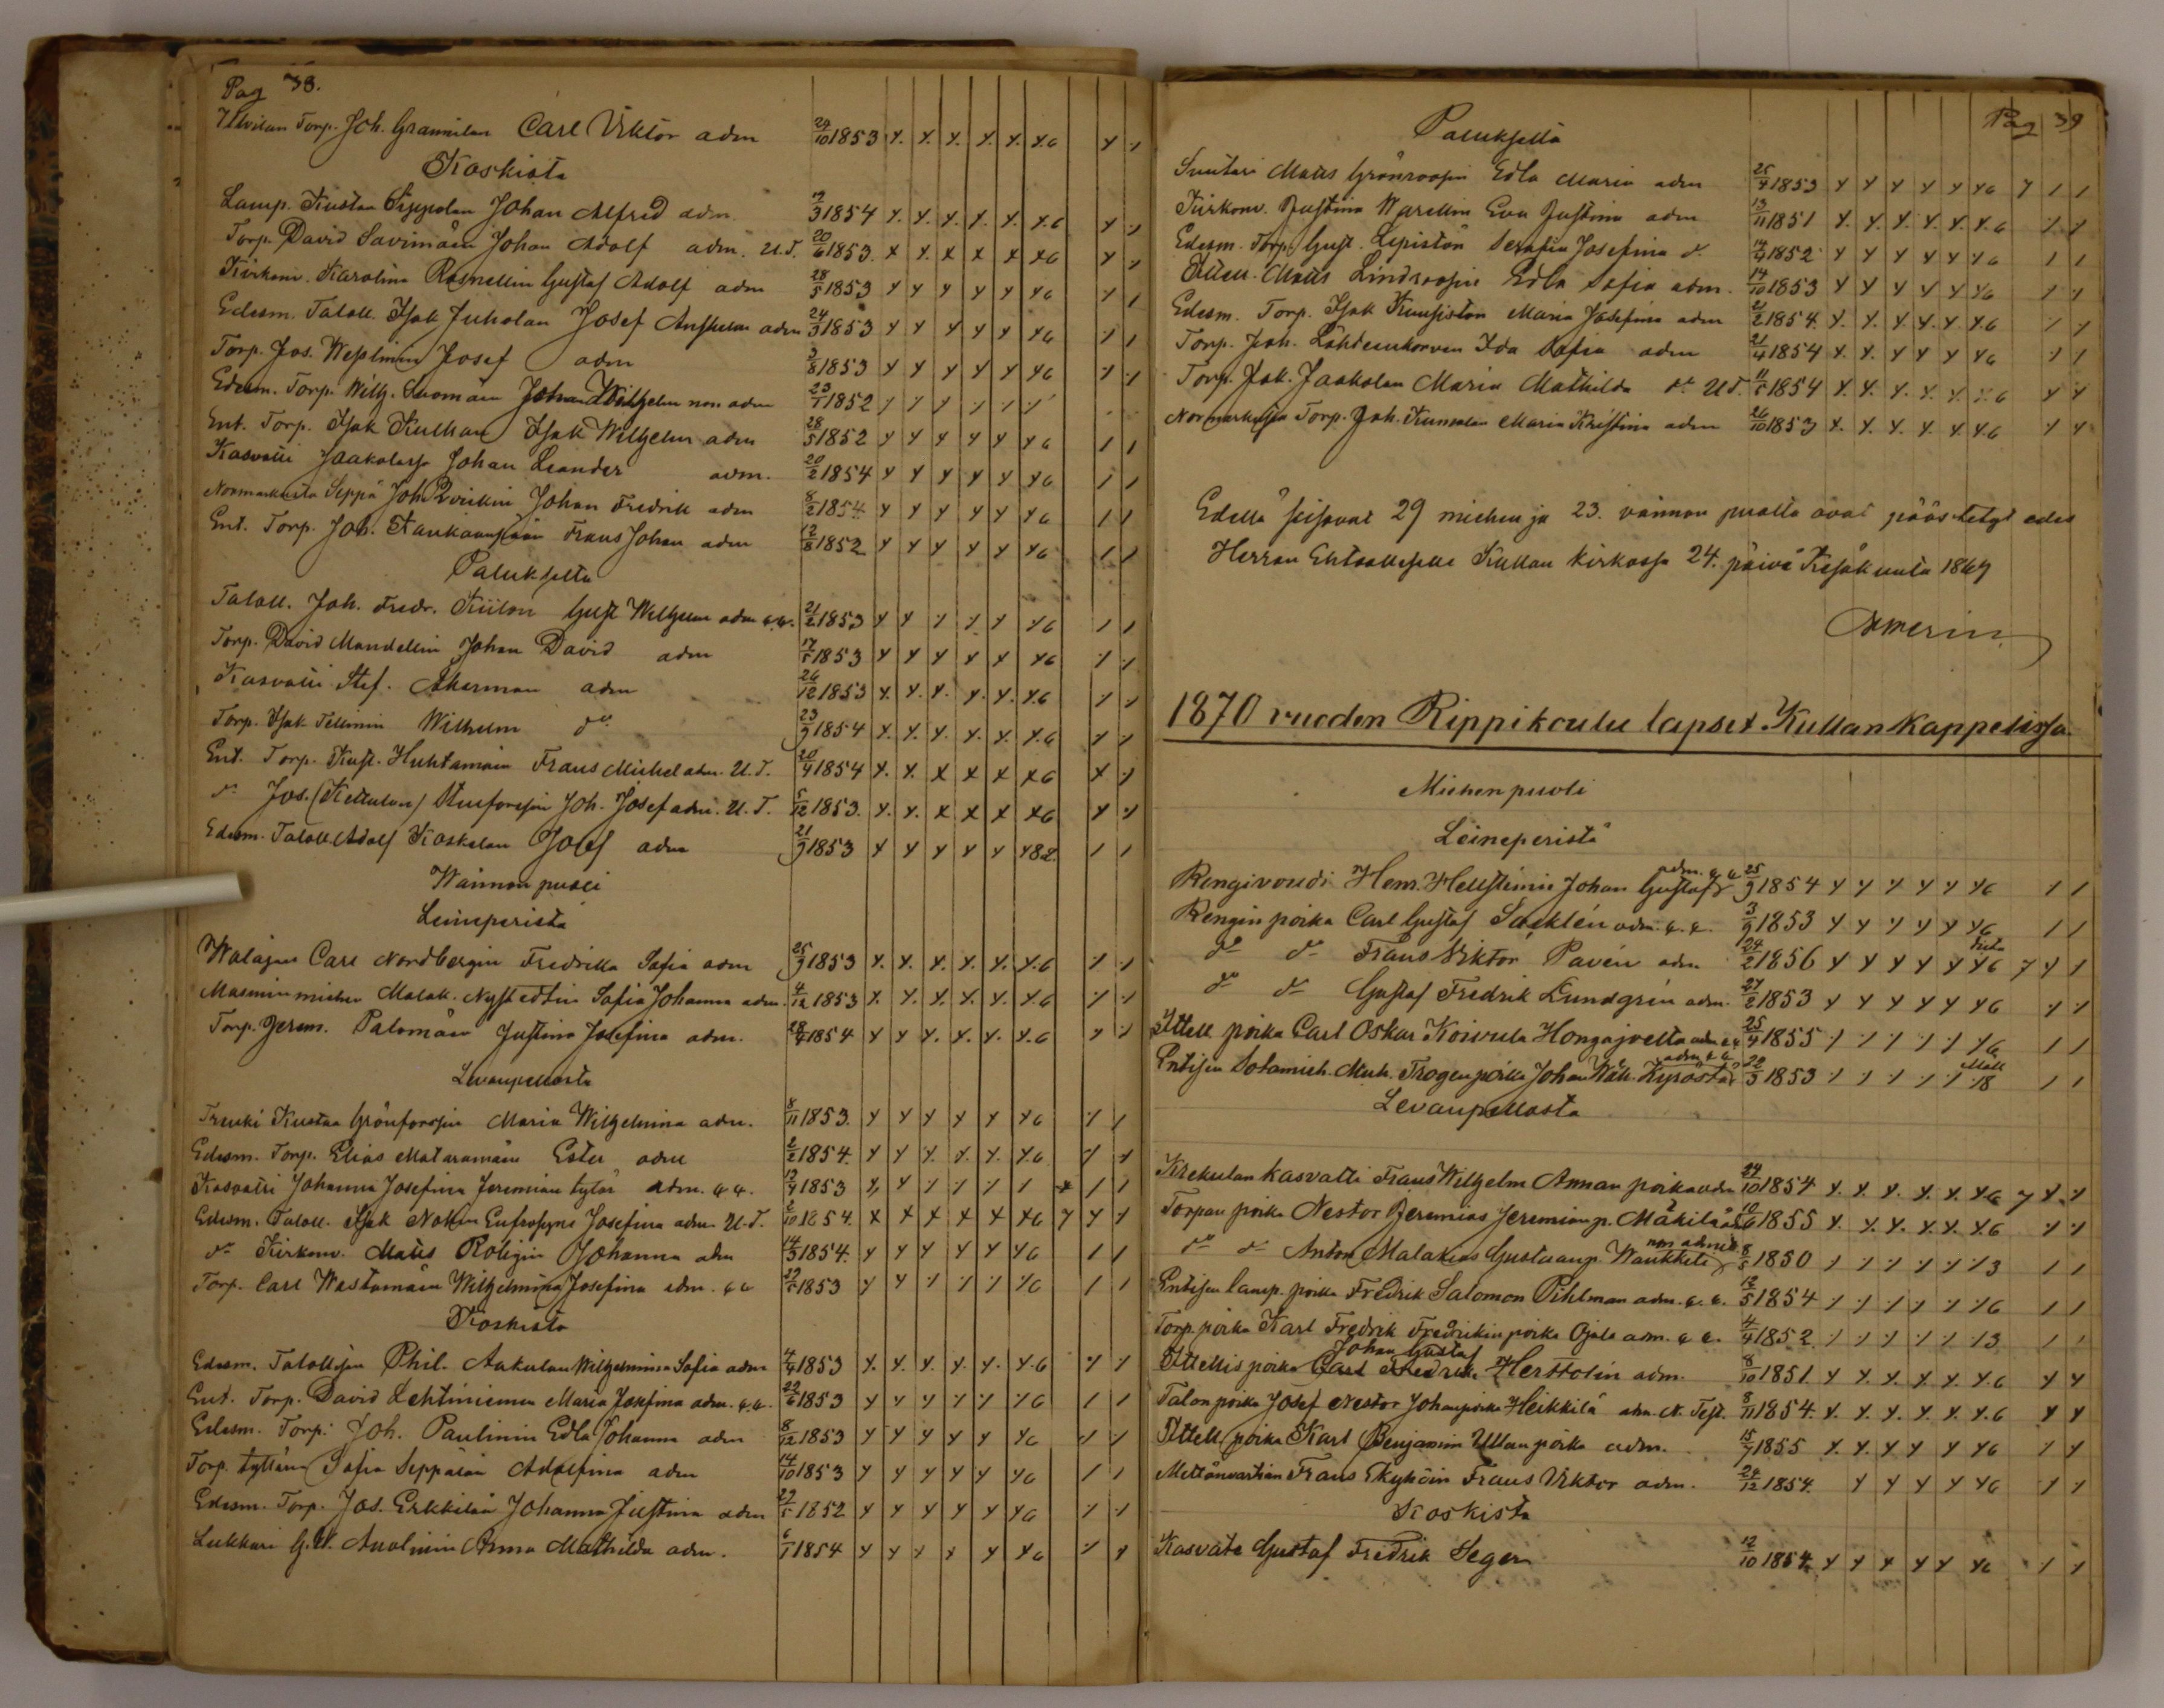 Pag 38.
Torp. Joh. Grannilan Carl Viktor adm 29/10 1853 Y. Y. Y. Y. Y. Y.6 Y Y
Koskista
Lamp. Kustaa Sippolan Johan Alfred adm. 19/3 1854 Y. Y. Y. Y. Y. Y.6 Y Y
Torp. David Savimäen Johan Adolf adm. U.T. 20/6 1853. X Y. X X X X6 Y Y
Kirkonv. Karolina Rosnellin Gustaf Adolf adm 28/5 1853 Y Y Y Y Y Y6 Y 1
Edesm. Taloll. Isak Juholan Josef Anshelm adm 24/3 1853 Y Y Y Y Y Y6 Y 1
Torp. Jos. Weslinin Josef adm 3/8 1853 Y Y Y Y Y Y6 Y Y
Edesm. Torp. Wilh. Suomäen Johan Wilhelm non adm 23/1 1852
Ent. Torp. Isak Kulhan Isak Wilhelm adm 28/5 1852 Y Y Y Y Y Y6 1 1
Kasvatti Jaakolassa Johan Leander adm. 20/2 1854 Y Y Y Y Y Y6 1 1
Normarkusta Seppä Joh. Qvickin Johan Fredrik adm 8/2 1854. Y Y Y Y Y Y6 1 1
Ent. Torp. Joh. Frans Johan adm 12/8 1852 Y Y Y Y Y Y6 1 1
Palukselta
Taloll. Joh. Fredr. Kiilon Gust Wilhelm adm 21/2 1853 Y Y 1 1 Y Y6 1 1
Torp. David Mandellin Johan David adm 17/5 1853 Y Y Y Y Y Y6 Y Y
Kasvatti Stef. Åkerman adm 26/12 1853 Y. Y. Y. Y. Y. Y.6 Y Y
Torp. Isak Tellinin Wilhelm do 23/9 1854 Y. Y. Y. Y. Y. Y.6 Y Y
Ent. Torp. Kust. Huhtamäen Frans Michel adm. U.T. 20/4 1854 Y. Y. X X X X6 X Y
do Jos. (Kettulan) Joh. Josef adm. U.T. 5/12 1853. Y. Y. X X X X6 Y Y
Edesm. Taloll. Adolf Koskelan Josef adm 21/9 1853 Y Y Y Y Y Y82. 1 1
Waimon puoli
Leineperistä
Carl Nordbergin Fredrika Sofia adm 25/9 1853 Y. Y. Y. Y. Y. Y.6 Y Y
Masmin miehen Malak. Nystedtin Sofia Johanna adm. 4/12 1853 Y. Y. Y. Y. Y. Y.6 Y Y
Torp. Jerem. Palomäen Justina Josefina adm. 28/4 1854 Y Y Y. Y. Y. Y.6 Y Y
Levanpellosta
Trenki Kustaa Grönforssin Maria Wilhelmina adm. 8/11 1853. Y Y Y Y Y Y6 Y 1
Edesm. Torp. Elias Mataramäen Ester adm 2/2 1854. Y Y Y. Y. Y. Y.6 Y Y
Kasvatti Johanna Josefina Jeremian tytär adm. 12/4 1853 Y Y 1 1 1 1 1 1
Edesm. Taloll. Isak Nokin Eufrosyne Josefina adm U.T. 2/10 1854. X X X X X X6 7 Y Y
do Kirkonv. Matts Johanna adm 14/3 1854. Y Y Y Y Y Y6 1 1
Torp. Carl Wastamäen Wilhelmina Josefina adm. 29/5 1853 Y Y 1 1 1 Y6 1 1
Koskista
Edesm. Talollisen Phil. Aakulan Wilhelmina Sofia adm 4/4 1853 Y. Y. Y. Y. Y. Y.6 Y Y
Ent. Torp. David Lehtiniemen Maria Josefina adm. 22/6 1853 Y Y Y 1 1 Y6 1 1
Edesm. Torp. Joh. Paulinin Edla Johanna adm 8/12 1853 Y Y Y Y Y Y6 Y 1
Torp. tyttären Sofia Seppälän Adolfina adm 14/10 1853 Y Y Y Y Y Y6 1 1
Edesm. Torp. Jos. Erkkilän Johanna Justina adm 29/5 1852 Y Y Y Y Y Y6 Y Y
Lukkari G.W. Anna Mathilda adm. 6/1 1854 Y Y Y Y Y Y6 Y Y
Pag 39
Palukselta
Suutari Matts Grönroosin Edla Maria adm 25/4 1853 Y Y Y Y Y Y6 7 1 1
Kirkonv. Justina Warellin Eva Justina adm 13/11 1851 Y. Y. Y. Y. Y. Y.6 Y Y
Edesm. Torp. Gust. Lepistön Serafia Josefina do 14/4 1852 Y Y Y Y Y Y6 1 1
Ittell. Matts Lindroosin Edla Sofia adm. 14/10 1853 Y Y Y Y Y Y6 Y Y
Edesm. Torp. Isak Kuusiston Maria Josefina adm 21/2 1854. Y. Y. Y. Y. Y. Y.6 Y Y
Torp. Joh. Lähteenkorvan Ida Sofia adm 21/4 1854 Y. Y. Y Y Y Y6 Y 1
Torp. Isk. Jaakolan Maria Mathilda do U.T. 11/5 1854 Y. Y. Y. Y. Y. Y.6 Y Y
Normarkusta Torp. Joh. Maria Kristina adm 26/10 1853 Y. Y. Y. Y. Y. Y.6 Y Y
Edellä seisovat 29 miehen ja 23. vaimon puolta ovat päästetyt edes
Herran Ehtoolliselle Kullan kirkossa 24. päivä Kesäkuuta 1869
1870 vuoden Rippikoulu lapset Kullan Kappelissa.
Miehen puoli
Leineperistä
Rengivouti Hem. Hellsténin Johan Gustaf adm. 25/9 1854 Y Y Y Y Y Y6 1 1
Rengin poika Carl Gustaf Sacklén adm. 3/9 1853 Y Y Y Y Y Y6 1 1
do do Frans Viktor Pavén adm 24/2 1856 Y Y Y Y Y Y6 7 Y 1
do do Gustaf Fredrik Lundgrén adm. 27/2 1853 Y Y Y Y Y Y6 Y Y
Ittell. poika Carl Oskar Koivula Hongajoelta adm 25/4 1855 1 1 1 1 1 Y6 1 1
Entisen Sotamieh. Mich. Trogen poika Johan Wilh. Kyröstä adm 22/3 1853 1 1 1 1 1 Y8 1 1
Levanpellosta
Krekulan kasvatti Frans Wilhelm Annan poika adm 24/10 1854 Y. Y. Y. Y. Y. Y6 7 Y. Y
Torpan poika Nestor Jeremias Jeremian p. Mäkilä 10/6 1855 Y. Y. Y. Y. Y. Y.6 Y Y
do do Anton Malakias Gustaanp. non admis. 8/5 1850 1 1 1 1 1 Y3 1 1
Entisen lamp. poika Fredrik Salomon Pihlman adm. 12/5 1854 1 1 1 1 1 Y6 1 1
Torp. poika Karl Fredrik Fredrikin poika Ojala adm. 4/4 1852. 1 1 1 1 1 13 1 1
Johan Gustaf
Ittellis poika Carl Fredrik Herttolin adm. 8/10 1851 Y Y. Y. Y. Y. Y.6 Y Y
Talon poika Josef Nestor Johan poika Heikkilä adm. N. Test. 8/11 1854. Y. Y. Y. Y. Y. Y.6 Y Y
Ittell. poika Karl Benjamin Ullan poika adm. 15/7 1855 Y. Y. Y Y Y Y6 1 Y
Mettänvartian Frans Frans Viktor adm. 24/12 1854. Y Y Y Y Y6 Y Y
Koskista
Kasvate Gustaf Fredrik Seger 12/10 1854. Y Y Y Y Y Y6 1 1